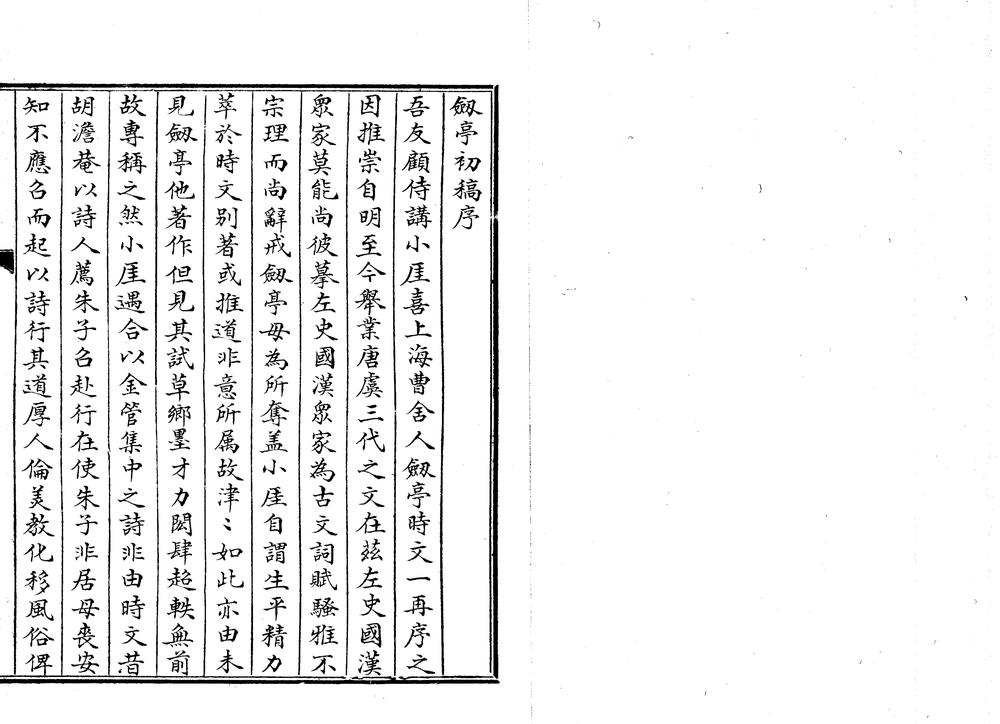 劔亭初稿序
吾友顧侍講小厓喜上海曹舍人劔亭時文一再序之
因推崇自明至今舉業唐虞三代之文在茲左史國漢
眾家莫能尚彼摹左史國漢眾家為古文詞賦騷雅不
宗理而尚辭戒劔亭毋為所奪盖小厓自謂生平精力
萃於時文別著或推道非意所属故津〻如此亦由未
見劔亭他著作但見其試草鄉墨才力閎肆超軼無前
故專稱之然小厓遇合以金管集中之詩非由時文昔
胡澹菴以詩人薦朱子召赴行在使朱子非居母喪安
知不應召而起以詩行其道厚人倫美教化移風俗俾